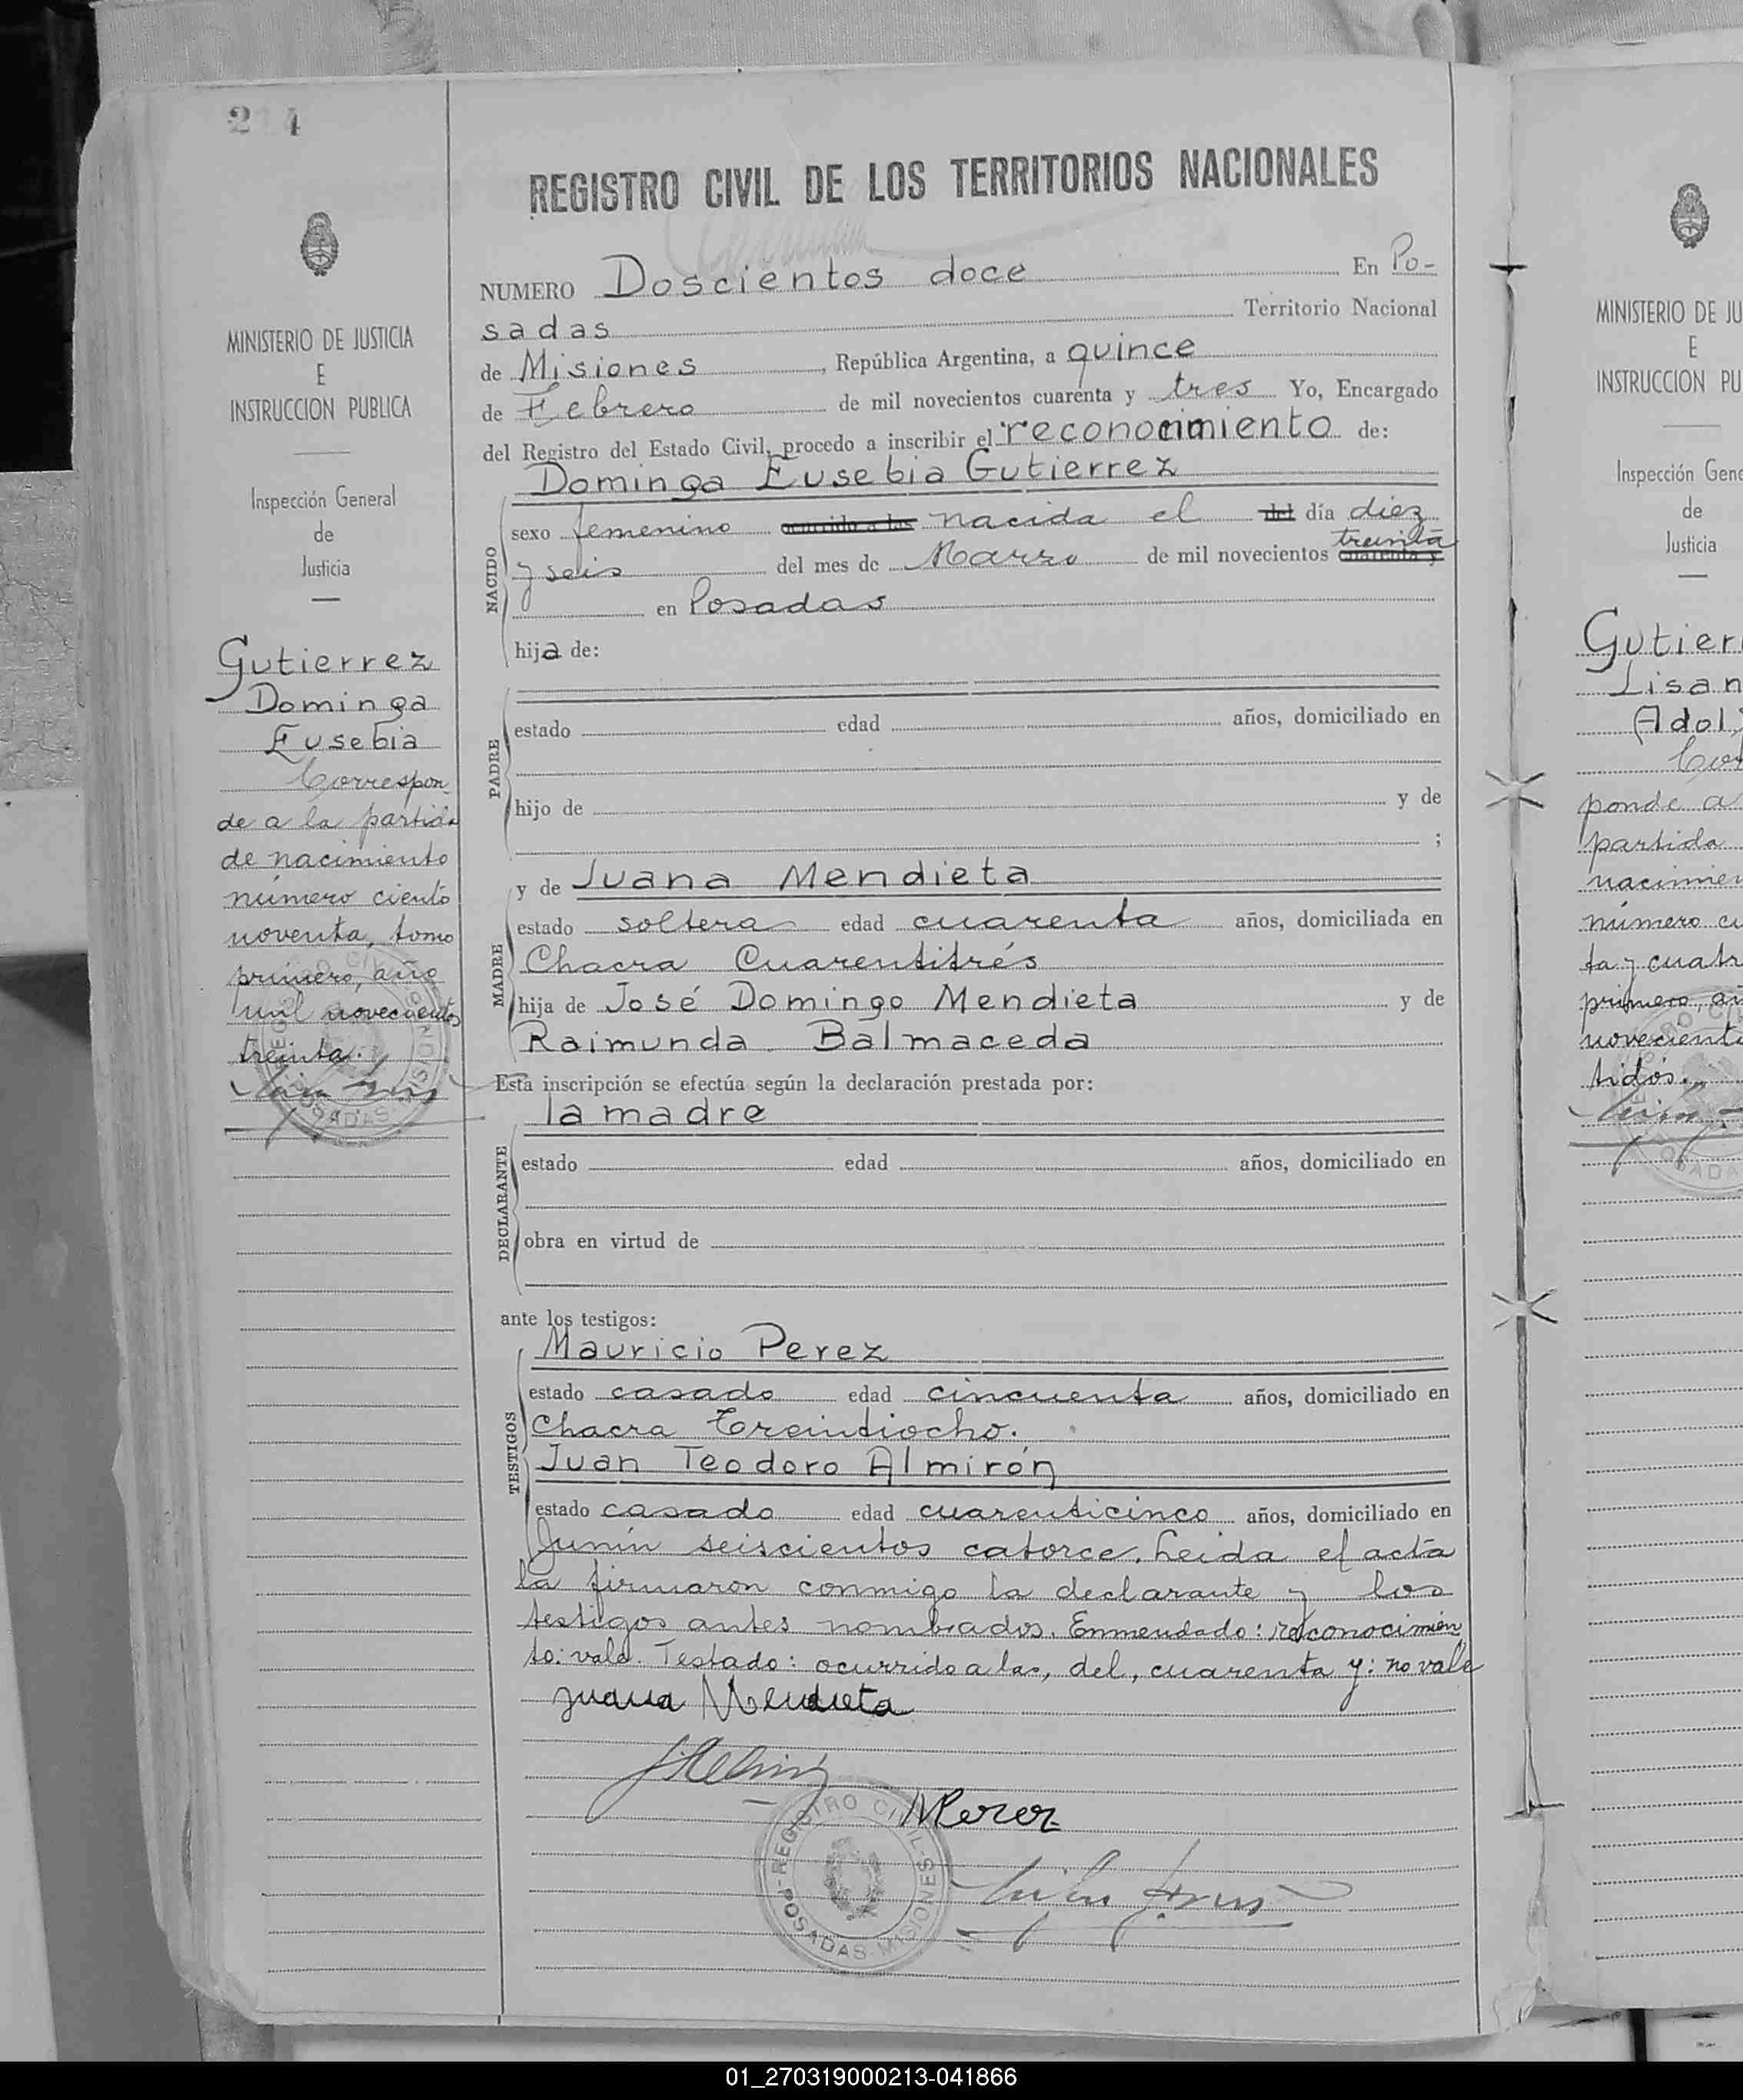 REGISTRO CIVIL DE LOS TERRITORIOS NACIONALES
NUMERO Doscientos doce En Po-
sadas Territorio Nacional
de Misiones, República Argentina, a quince
de Febrero de mil novecientos cuarenta y tres Yo, Encargado
del Registro del Estado Civil, procedo a inscribir el reconocimiento de:
Dominga Eusebia Gutierrez
NACIDO
sexo femenino ocurrido a las nacida el del día diez
y seis del mes de Marzo de mil novecientos cuarenta y treinta
en Posadas
hija de:
PADRE
estado edad años, domiciliado en
hijo de y de
;
MADRE
y de Juana Mendieta
estado soltera edad cuarenta años, domiciliada en
Chacra Cuarentitrés
hija de José Domingo Mendieta y de
Raimunda Balmaceda
Esta inscripción se efectúa según la declaración prestada por:
la madre
DECLARANTE
estado edad años, domiciliado en
obra en virtud de
ante los testigos:
TESTIGOS
Mauricio Perez
estado casado edad cincuenta años, domiciliado en
Chacra Treintiocho.
Juan Teodoro Almirón
estado casado edad cuarenticinco años, domiciliado en
Junín seiscientos catorce. Leida el acta
la firmaron conmigo la declarante y los
testigos antes nombrados. Enmendado: reconocimien
to: vale. Testado: ocurrido a las, del, cuarenta y: no vale
Juana Mendieta
MPerez
REGISTRO CIVIL
POSADAS-MISIONES
MINISTERIO DE JUSTICIA
E
INSTRUCCION PUBLICA
Inspección General
de
Justicia
Gutierrez
Dominga
Eusebia
Correspon-
de a la partida
de nacimiento
número ciento
noventa, tomo
primero, año
mil novecientos
treinta.
MINISTERIO DE JU
E
INSTRUCCION PU
Inspección Gene
de
Justicia
Gutierr
Lisan
Adol
ponde a
partida
nacimien
número cu
ta y cuatr
primero, añ
noveciento
tidós.
01_270319000213-041866